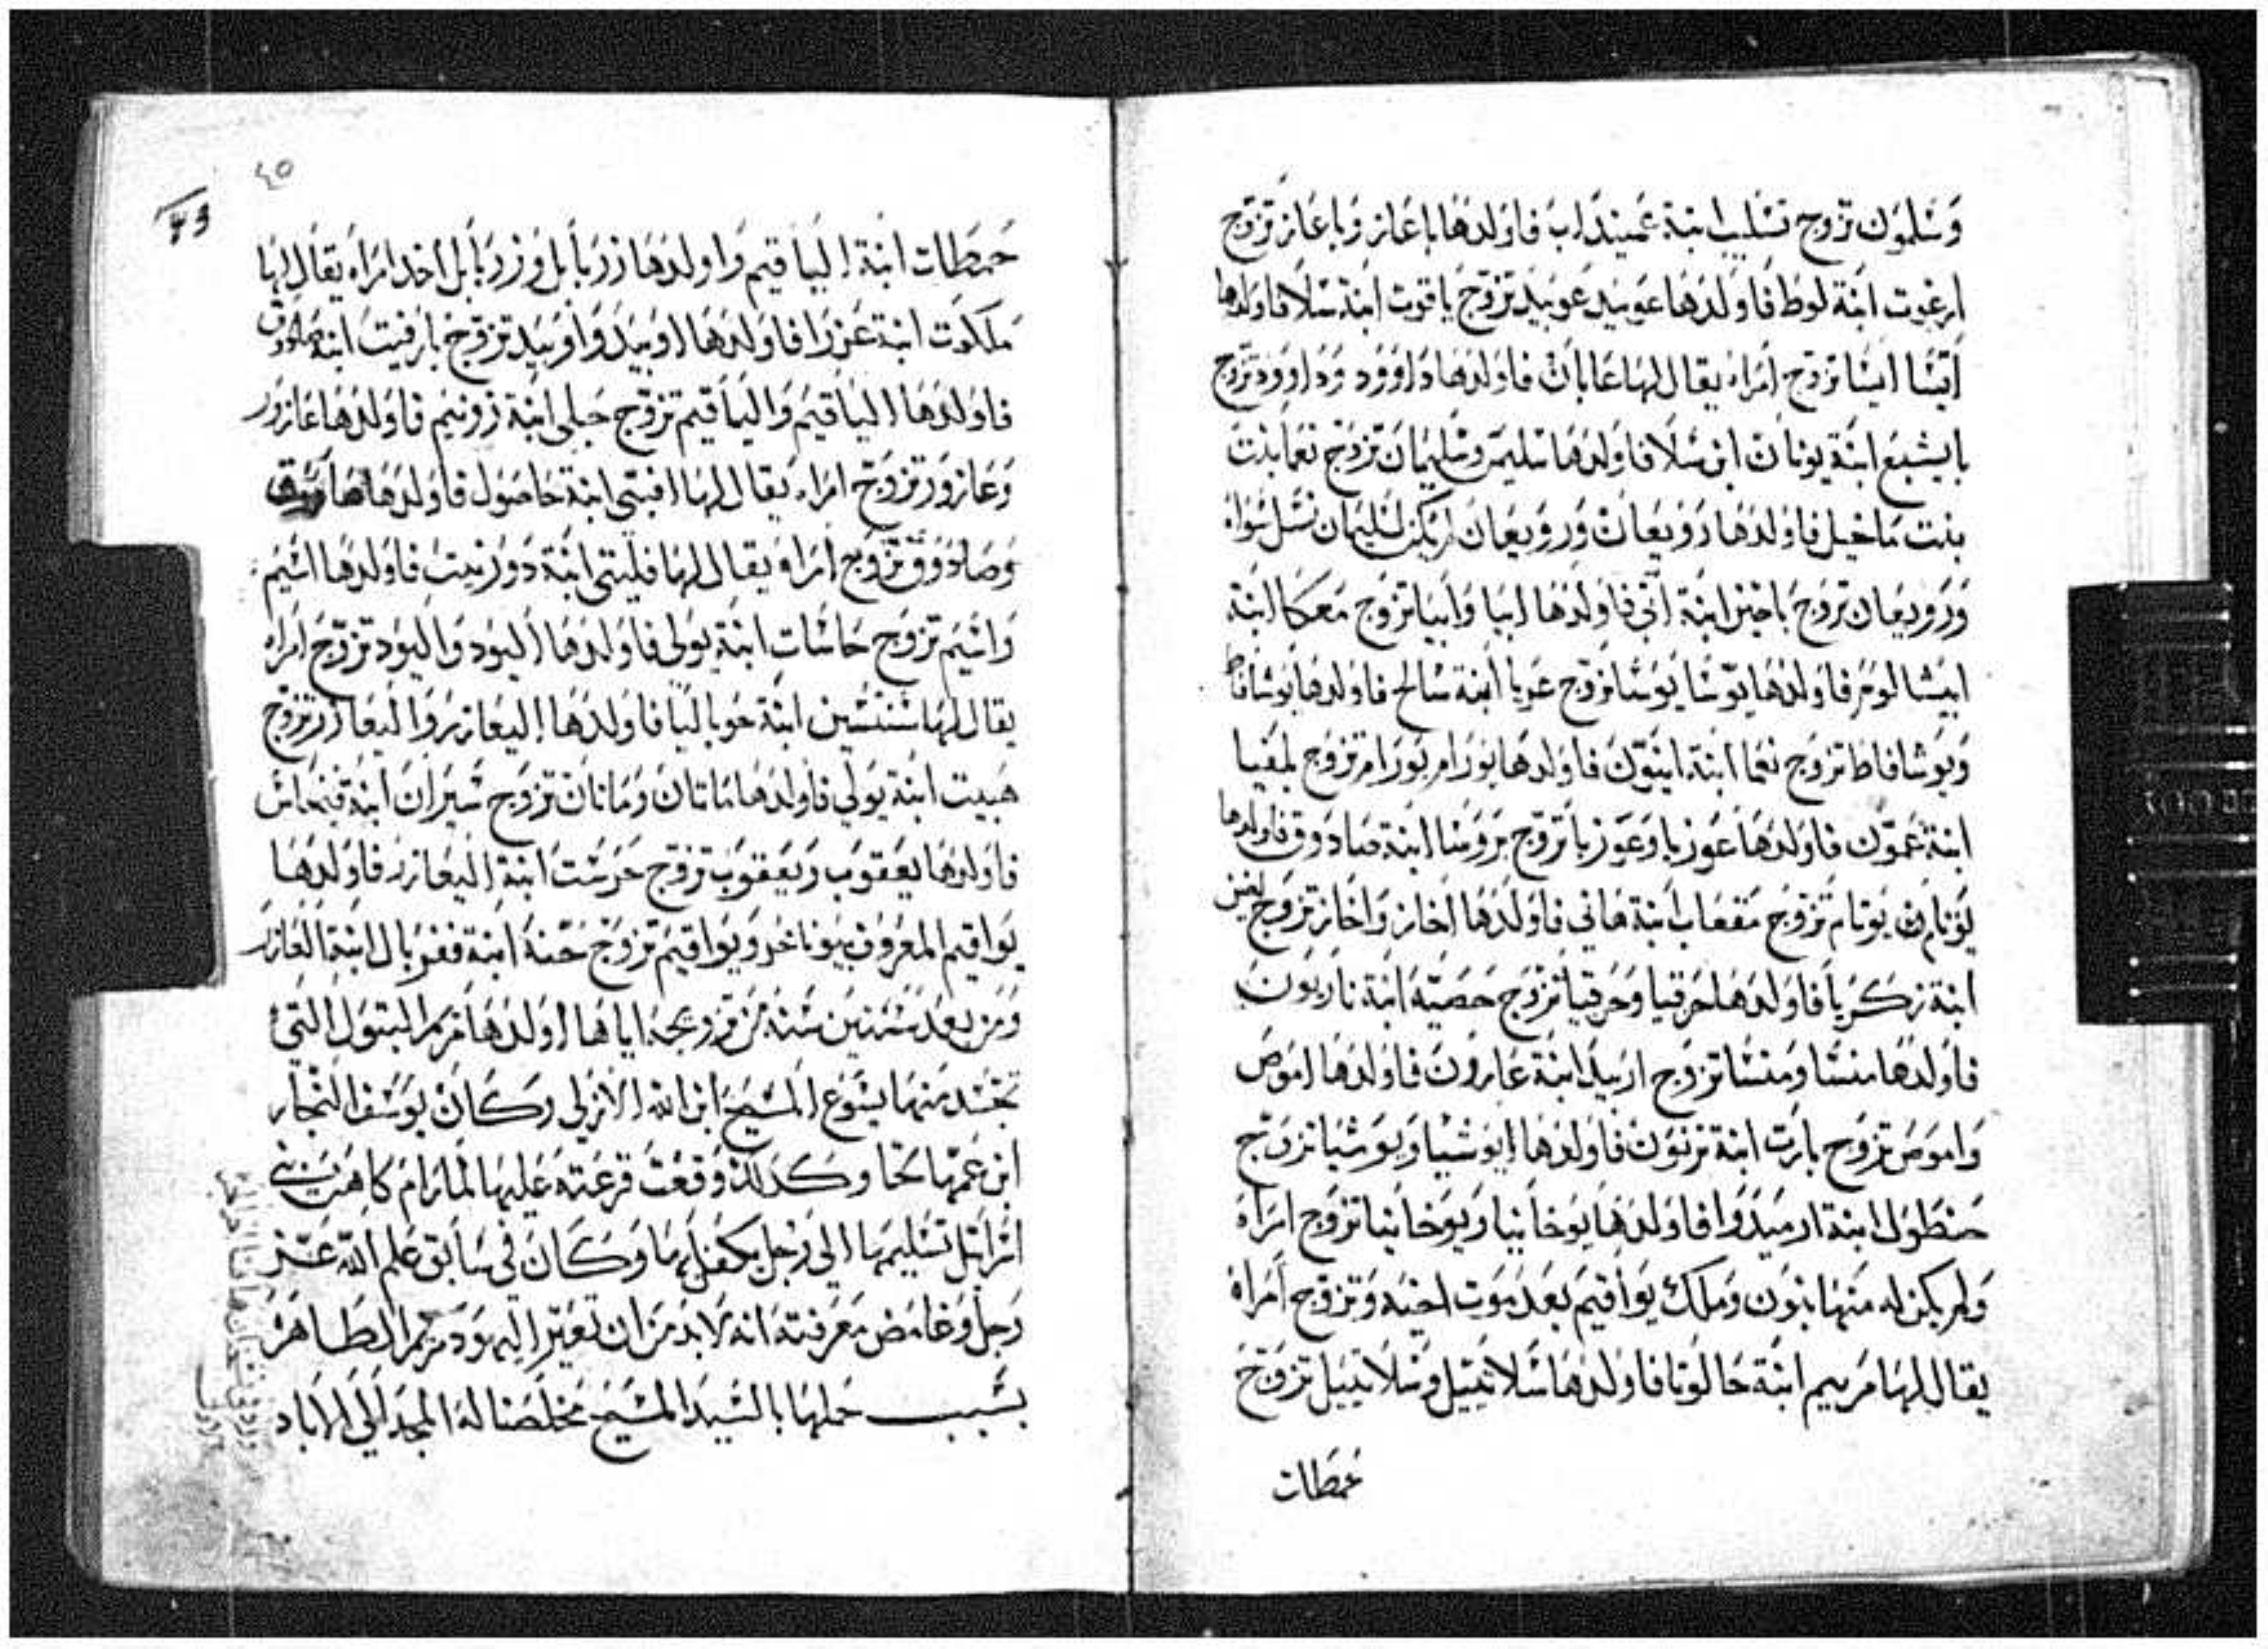 وَسَلمون تزوج تسَليب ابنة عَميندَاب فاولدهَا باعَاز وَباعَاز تزوّج
ارعوت ابَنة لوط فاولدَهَا عوبيد عَوبيد تزوّج باقوت ابنة سَلا فاولدها
ايشا ايشا تزوج امَراة يقال لهَا عَابان فاولدهَا دَاوود ودَاوود تزوج
بايشبع ابنة يونان ابن سَلا فاولدهَا سَليمن وسَليمَان تزوج نعَما بنت
بنت ماخيل فاولدهَا روبعَان وَروبيعَان لم يكن لسَليمان نسَل سَواة
وَروبيعَان تزوجَ باحيز ابنة اتي فاولدهَا ابيا وابيا تزوج مَعكا ابنَة
ابيشالوم فاولدهَا يوسَا يوسَا تزوج عَوبا ابنة سَالح فاولدهَا يوشافاط
وَيوشافاط تزوج نعَما ابنة اينون فاولدهَا يورَام يورَام تزوج بلمفيا
ابنة عَمون فاولدهَا عَوزيا وعَوزيا تزوج بروسَا ابنة صَادوق فاولدها
يونام من يونام تزوج مَقعَاب ابنة هَاني فاولدهَا اخَاز وَاخَاز تزوج لفيز
ابنة زكَريا فاولدهَا حزقيا وحَزقيا تزوج حَصَية ابَنة ناريون
فاولدهَا منسَّا ومَنسَّا تزوج ارَبيل ابنَة عَارون فاولدهَا امَوص
وَامَوص تزوج بارت ابنة تزنون فاولدهَا ايوشيا ويوشيا تزوج
حنطول ابنة ارميدوا فاولدهَا يوخانيا ويوخانيا تزوج امرَاة
وَلم يكن له منهَا بنون ومَلك يواقيم بعَد موت اخيه وَتزوج امرَاة
يقال لهَا مَرييم ابنَة حَالوتا فاولدهَا سَلاتييل وسَلاتييل تزوج
حمَطات
٤٥
43
حمَطات ابنَة الياقيم وَاولدهَا زربابل وَزربابل اخد امرَاه يقال لهَا
ملكوت ابنة عَزرَا فاولدهَا اوبيد وَاوبيد تزوج بارَفيت ابنة صَادوق
فاولدهَا الياقيم وَالياقيم تزوج حَبلي ابنَة زونيم فاولدهَا عَازور
وَعَازور تزوج امراه يقال لهَا افيتي ابنة حَاصول فاولدهَا
وَصَادوق تزوج امرَاة يقال لهَا فليتي ابنَة دوزنيت فاولدهَا اشيم
وَاشيم تزوج حاسَات ابنَة يولي فاولدهَا اليود وَاليود تزوج امَراه
يقال لهَا شنتشين ابنة حوباليا فاولدهَا اليعَازر وَاليعَازر تزوج
هَبيت ابنَة يولي فاولدهَا مَاتان ومَاتان تزوج سَيران ابنة فينحاس
فاولدهَا يعقوب ويَعقوب تزوج حَرست ابنة اليعَازر فاولدهَا
يواقيم المعروف بيوناخر ويواقيم تزوج حَنه ابنة فقوبال ابنَة العَازر
وَمن بعَد سَتين سَنة من تزويجه اياهَا اولدهَا مَريم البتول التي
تجسَّد منهَا يَسَوع المسَيح ابن الله الازلي وكَان يوسَف النجار
ابن عَمها لحَا وكَدلك وَقعَت قرعَته عَليهَا لما رَام كاهن بني
اسَرائل تسَليمهَا الي رَجل يكفلهَا وكَان في سَابق علم الله عَز
وَجل وَغامض مَعرفته انه لا بد من ان تعَير اليهود مريم الطَاهرَة
بسَبب حملهَا بالسَيد المسَيح مَخلصَنا له المجد الي الاباد